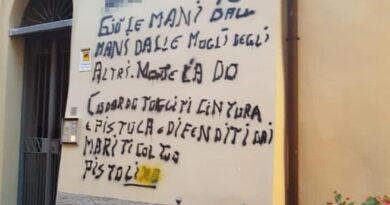 GIÙ LE MANI DALL
MANI DALLE MOGLI DEGLI
ALTRI.
CODARDO TOGLITI CINTURA
E PISTOLA E DIFENDITI DAI
MARITI COL TUO
PISTOLI